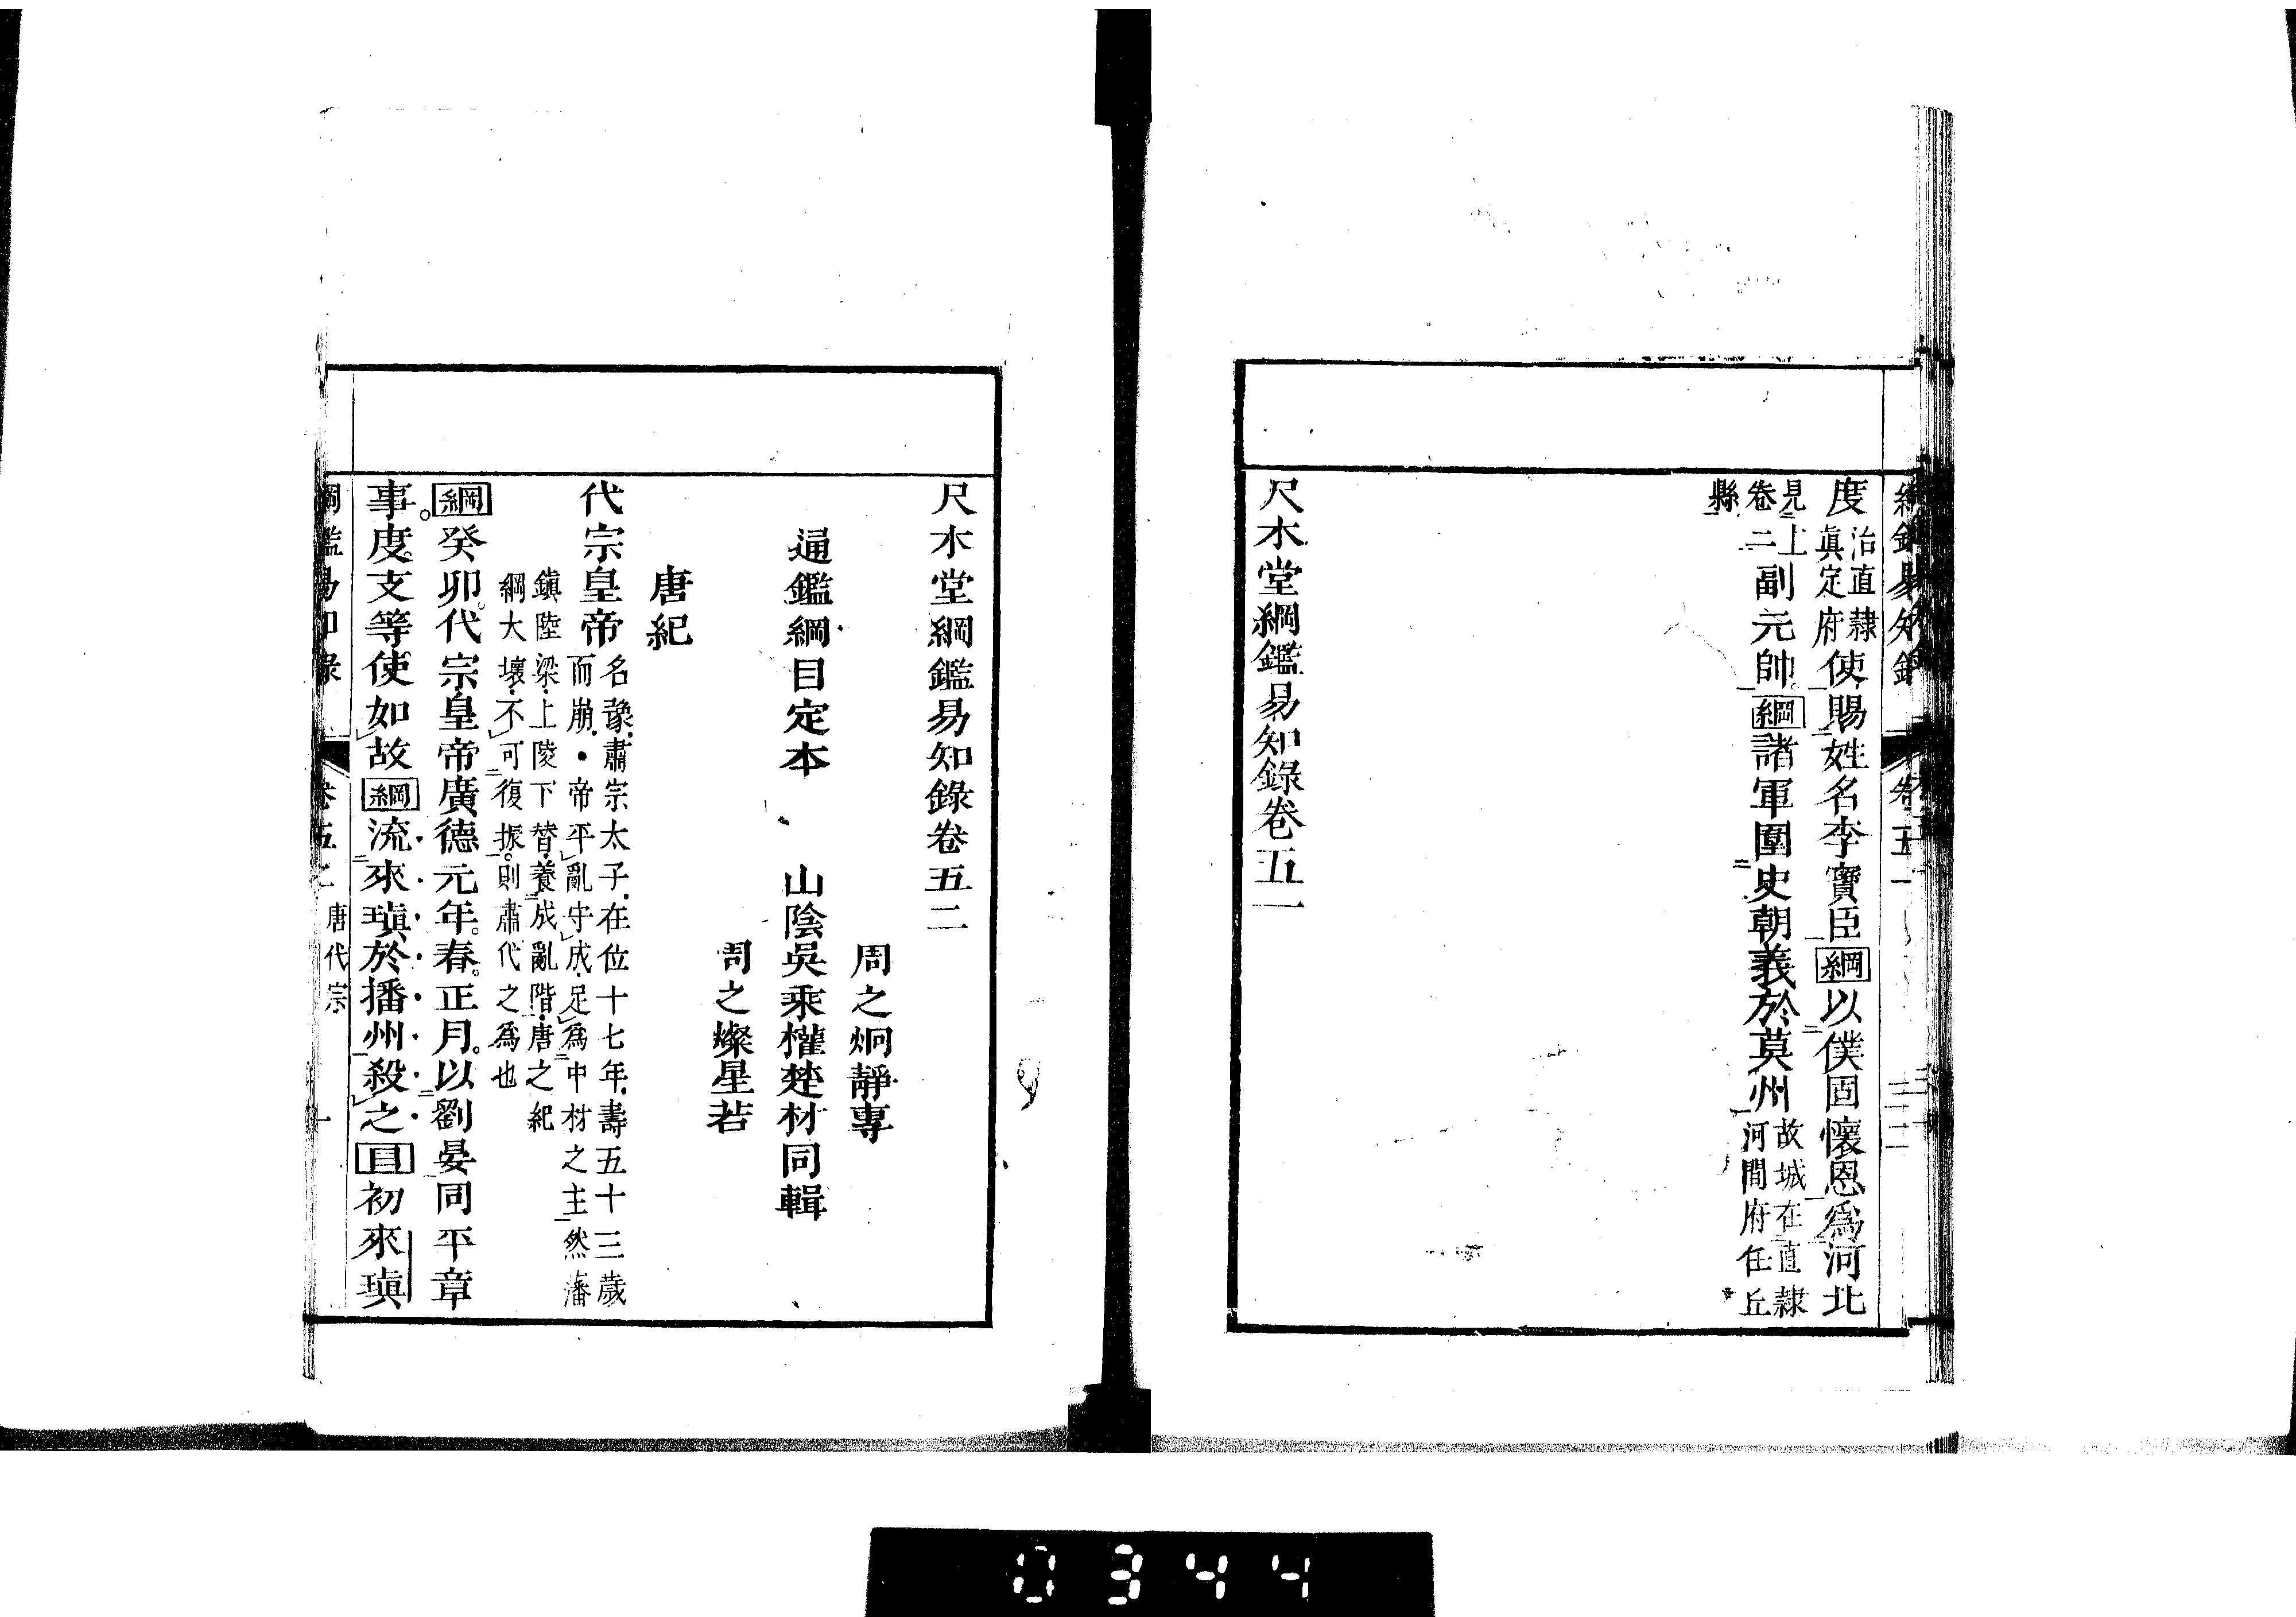 度治直隸真定府使賜姓名李寶臣綱以僕固懷恩爲河北
見上卷二副元帥綱諸軍圍史朝義於莫州故城在直隸河間府任丘
縣
尺木堂綱鑑易知錄卷五一
尺木堂綱鑑易知錄卷五二
周之炯靜專
通鑑綱目定本 山陰吳乘權楚材同輯
周之燦星若
唐紀
代宗皇帝名豫肅宗太子在位十七年壽五十三歲
而崩帝平亂守成足爲中材之主然藩
鎮陸梁上陵下替養成亂階唐之紀
綱大壞不可復振則肅代之爲也
綱癸卯代宗皇帝廣德元年春正月以劉晏同平章
事度支等使如故綱流來瑱於播州殺之目初來瑱
唐代宗
0344